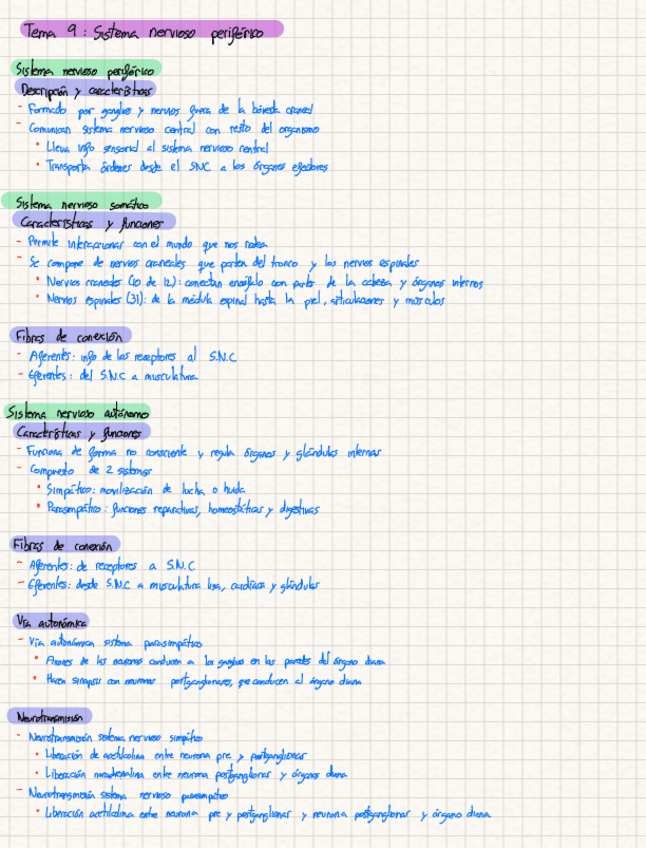 Tema 9: Sistema nervioso periférico
Sistema nervioso periférico
Descripción y características
- Formado por ganglios y nervios fuera de la bóveda craneal
- Comunican sistema nervioso central con resto del organismo
• Lleva info sensorial al sistema nervioso central
• Transporta órdenes desde el SNC a los órganos efectores
Sistema nervioso somático
Características y funciones
- Permite interaccionar con el mundo que nos rodea
- Se compone de nervios craneales que parten del tronco y los nervios espinales
• Nervios craneales (10 de 12): conectan encéfalo con partes de la cabeza y órganos internos
• Nervios espinales (31): de la médula espinal hasta la piel, articulaciones y músculos
Fibras de conexión
- Aferentes: info de los receptores al S.N.C
- Eferentes: del S.N.C a musculatura
Sistema nervioso autónomo
Características y funciones
- Funciona de forma no consciente y regula órganos y glándulas internas
- Compuesto de 2 sistemas
• Simpático: movilización de lucha o huida
• Parasimpático: funciones reparativas, homeostáticas y digestivas
Fibras de conexión
- Aferentes: de receptores a S.N.C
- Eferentes: desde S.N.C a musculatura lisa, cardíaca y glándulas
Vía autonómica
- Vía autonómica sistema parasimpático
• Axones de las neuronas conducen a los ganglios en las paredes del órgano diana
• Hacen sinapsis con neuronas postganglionares, que conducen al órgano diana
Neurotransmisión
- Neurotransmisión sistema nervioso simpático
• Liberación de acetilcolina entre neurona pre y postganglionar
• Liberación noradrenalina entre neurona postganglionar y órganos diana
- Neurotransmisión sistema nervioso parasimpático
• Liberación acetilcolina entre neurona pre y postganglionar y neurona postganglionar y órgano diana